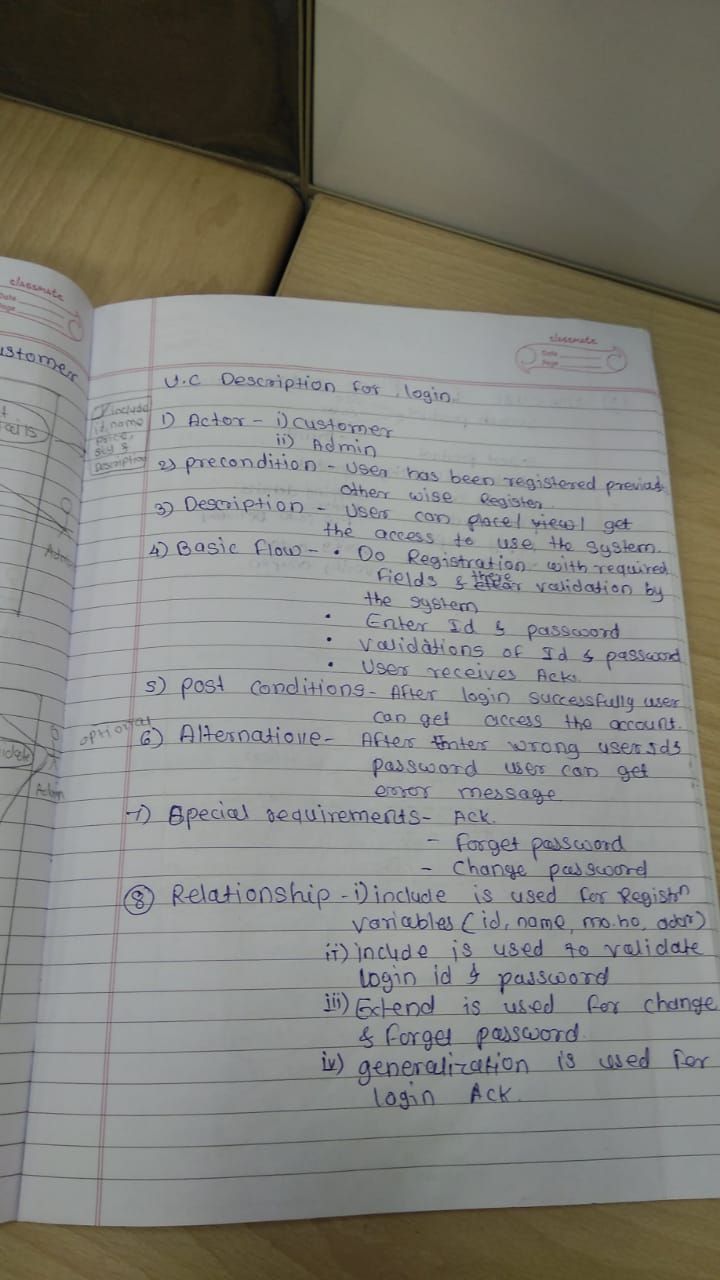 classmate
Date
Page
ustomer
classmate
Date
Page
U.C Description for login.
include
id, name
price,
Description
1) Actor - i) customer
ii) Admin
2) precondition - User has been registered
other wise Register
3) Description - Users can place / view / get
the access to use the system.
4) Basic flow - • Do Registration with required
fields & there validation by
the system
• Enter Id & password
• validations of Id & password
• User receives Ack.
5) post conditions - After login successfully user
can get access the account.
optional
6) Alternative - After Enter wrong user Id &
password user can get
error message
7) Special requirements - Ack.
- Forget password
- Change password
8) Relationship - i) include is used for Registrn
variables (id, name, mo.no, addr)
ii) include is used to validate
login id & password
iii) Extend is used for change
& forget password.
iv) generalization is used for
login Ack.
Admin